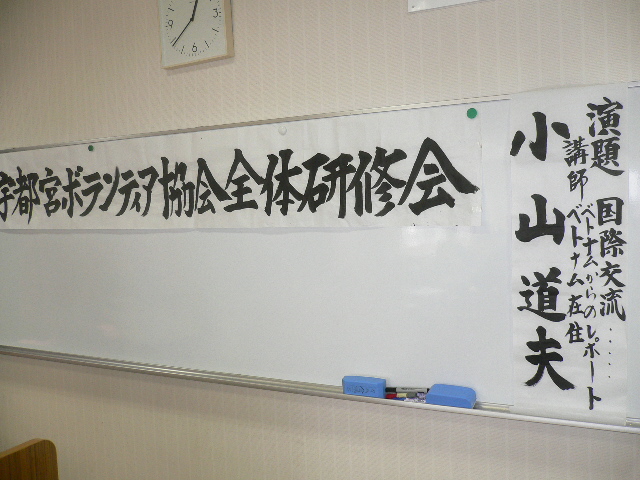 宇都宮ボランティア協会全体研修会
演題 国際交流‥‥
ベトナムからのレポート
講師 ベトナム在住
小山道夫